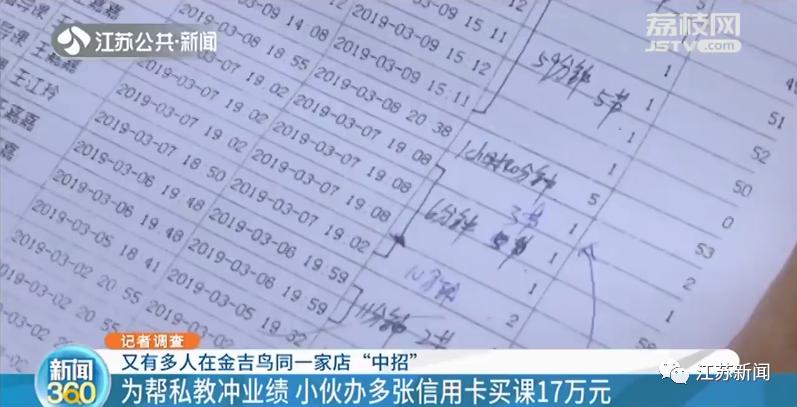 江苏公共·新闻
荔枝网
JSTV.com
指导课
王嘉嘉
王江玲
王嘉嘉
2019-03-08 18:55
2019-03-07 19:02
2019-03-07 19:02
2019-03-07 19:02
2019-03-07 18:50
2019-03-06 19:48
2019-03-06 19:48
2019-03-05 18:41
2019-03-02 20:55
2019-03-09 15:11
2019-03-09 15:12
2019-03-09 15:11
2019-03-08 20:38
2019-03-07 19:08
2019-03-07 19:08
2019-03-07 19:08
2019-03-07 19:02
2019-03-06 19:59
2019-03-06 19:59
2019-03-05 19:32
59分钟 5节
6分钟 3节
11分钟 2节
1
1
1
1
5
1
1
2
51
52
50
0
53
2
记者调查
又有多人在金吉鸟同一家店“中招”
新闻360
为帮私教冲业绩 小伙办多张信用卡买课17万元
江苏新闻